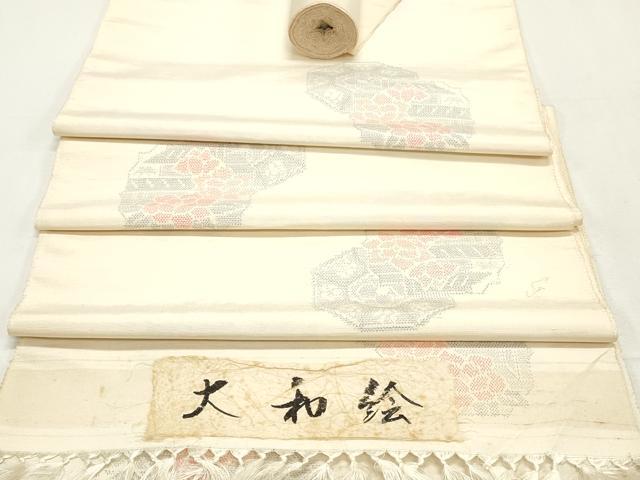 大和絵